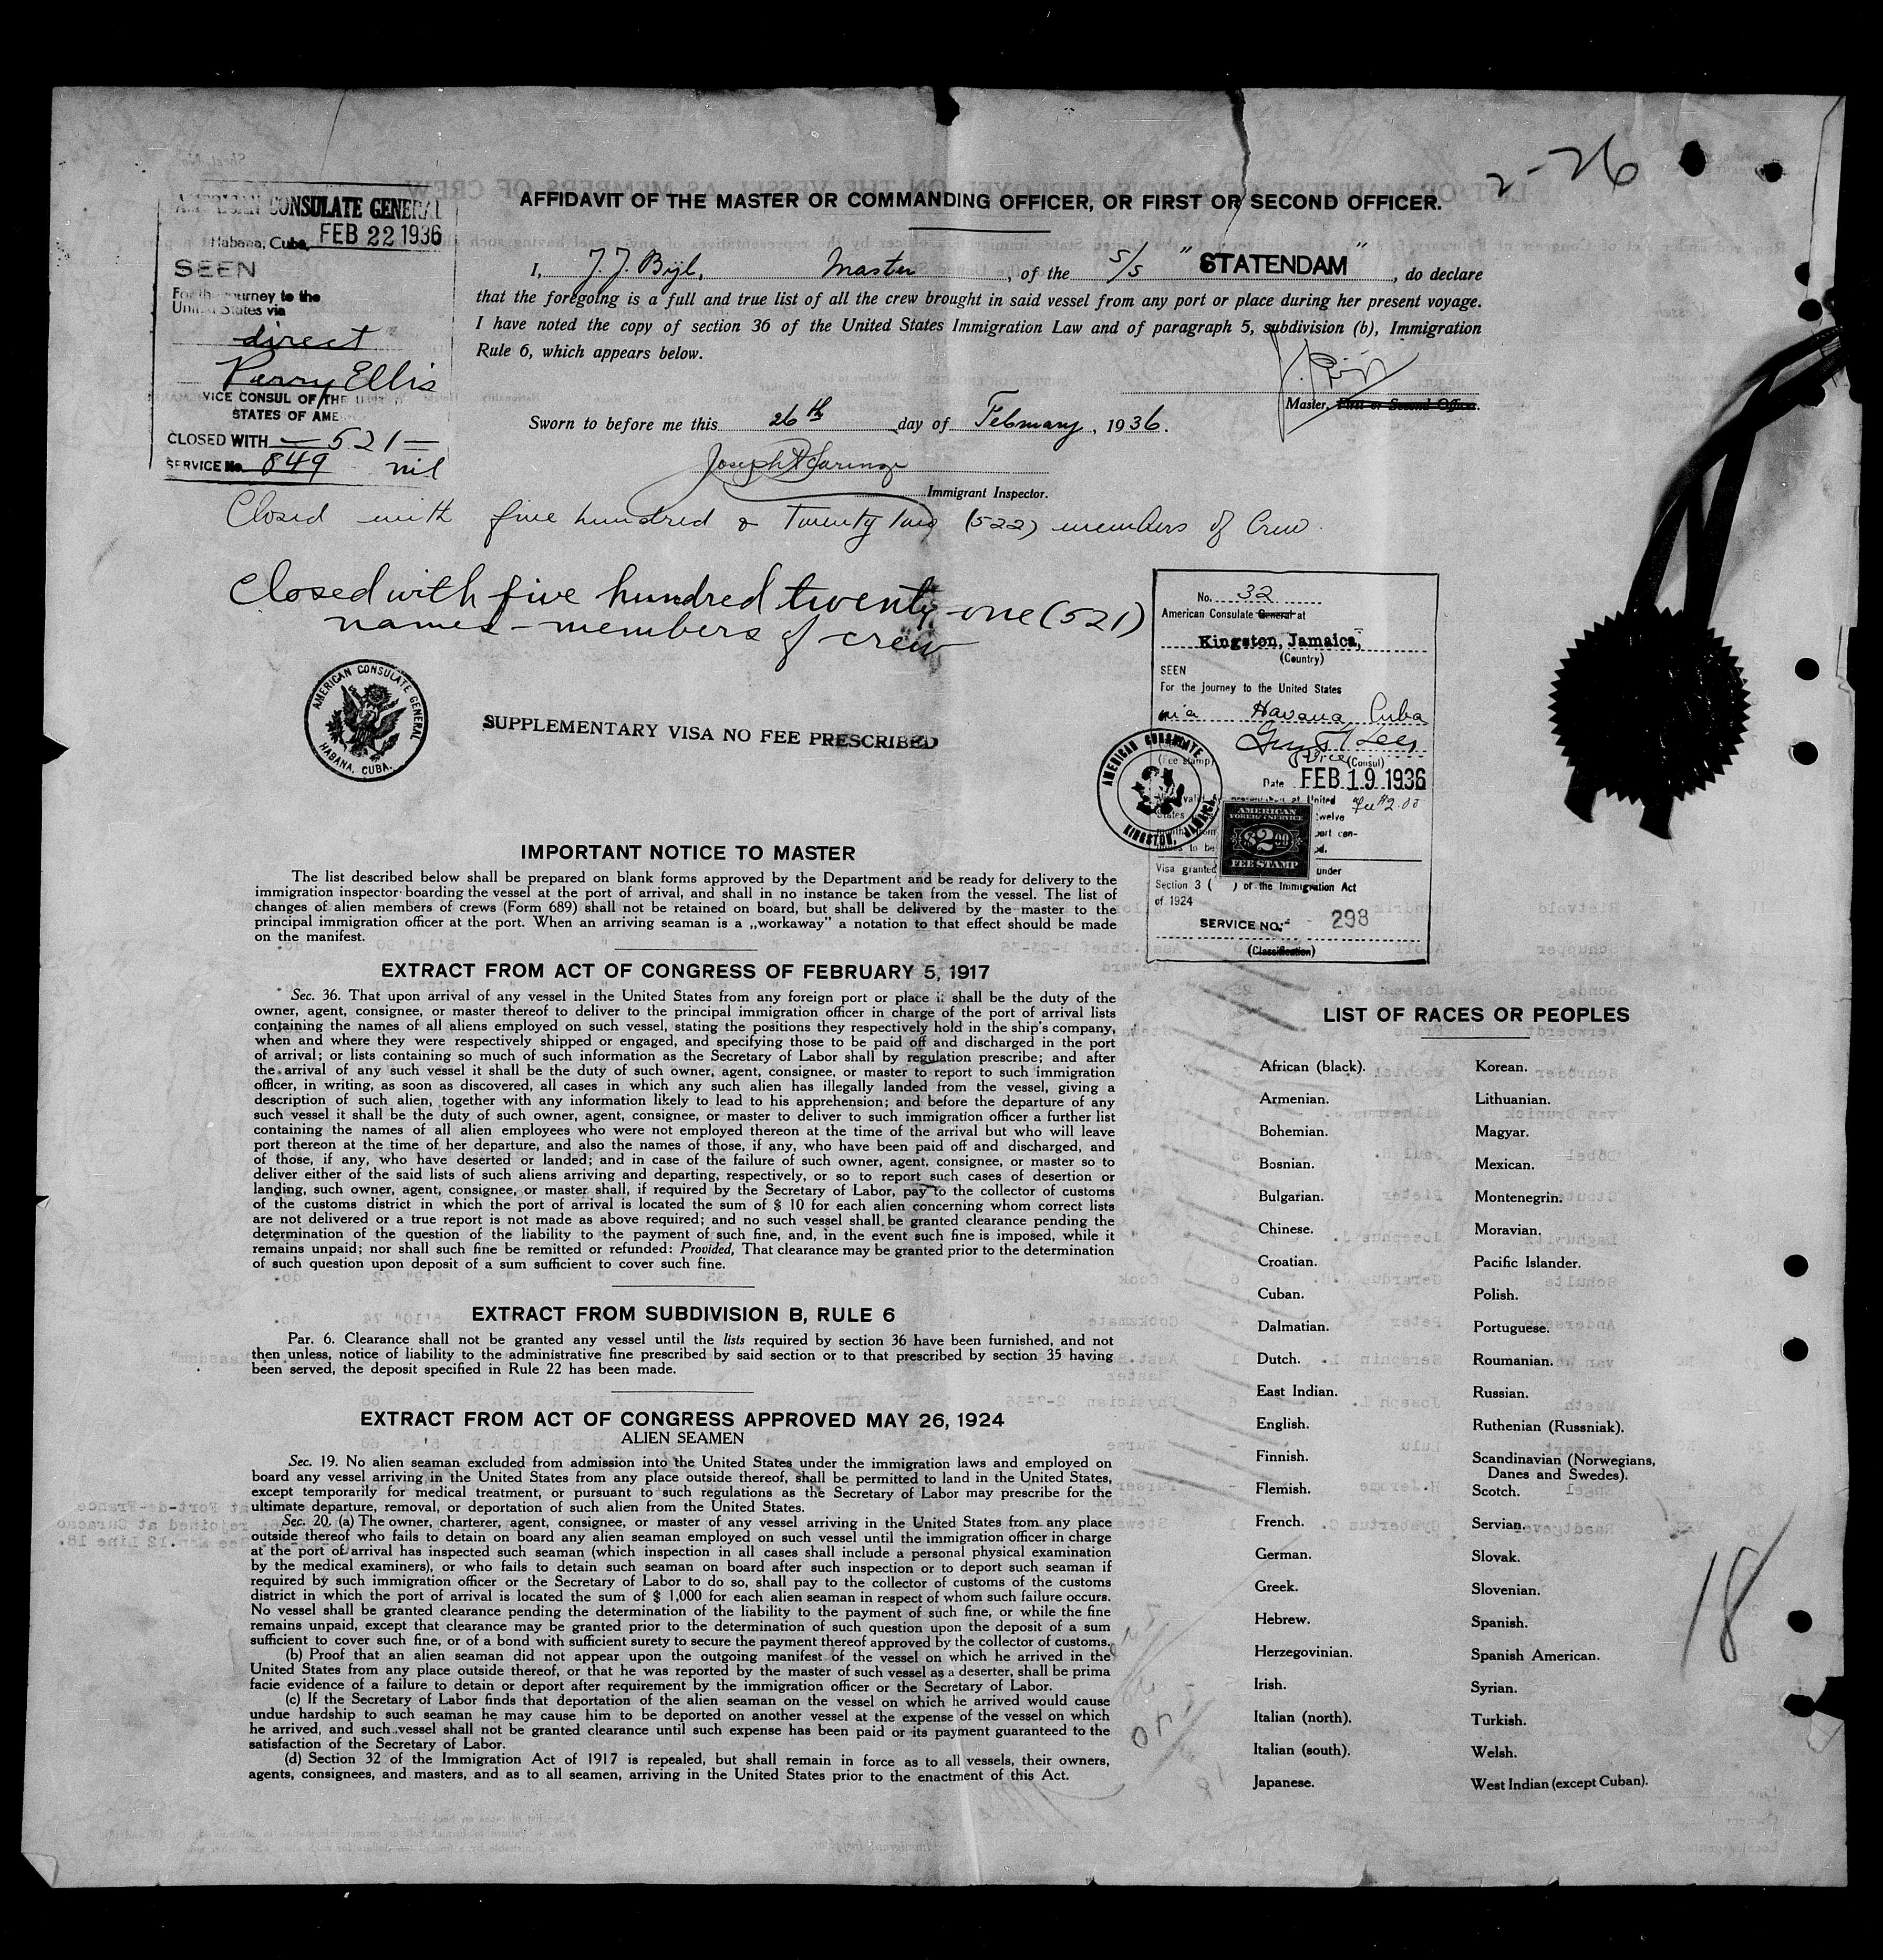 2-26
AFFIDAVIT OF THE MASTER OR COMMANDING OFFICER, OR FIRST OR SECOND OFFICER.
AMERICAN CONSULATE GENERAL
Habana, Cuba, FEB 22 1936
SEEN
For the journey to the
United States via
direct
Perry Ellis
VICE CONSUL OF THE UNITED
STATES OF AME
CLOSED WITH — 521 —
SERVICE No. 849 nil
I, J. J. Bijl, Master, of the S/S "STATENDAM", do declare
that the foregoing is a full and true list of all the crew brought in said vessel from any port or place during her present voyage.
I have noted the copy of section 36 of the United States Immigration Law and of paragraph 5, subdivision (b), Immigration
Rule 6, which appears below.
Master, First or Second Officer.
Sworn to before me this 26th day of February, 1936.
Immigrant Inspector.
Closed with five hundred & Twenty two (522) members of Crew.
Closed with five hundred twenty-one (521)
names - members of crew
AMERICAN CONSULATE GENERAL
HABANA, CUBA.
SUPPLEMENTARY VISA NO FEE PRESCRIBED
No. 32
American Consulate General at
Kingston, Jamaica,
(Country)
SEEN
For the journey to the United States
via Havana, Cuba
Vice (Consul)
(Fee stamp)
Date FEB 19 1936
Fee $2.00
AMERICAN CONSULATE
KINGSTON, JAMAICA
AMERICAN
FOREIGN SERVICE
$2.00
FEE STAMP
Visa granted under
Section 3 ( ) of the Immigration Act
of 1924
SERVICE NO. 298
(Classification)
IMPORTANT NOTICE TO MASTER
The list described below shall be prepared on blank forms approved by the Department and be ready for delivery to the
immigration inspector boarding the vessel at the port of arrival, and shall in no instance be taken from the vessel. The list of
changes of alien members of crews (Form 689) shall not be retained on board, but shall be delivered by the master to the
principal immigration officer at the port. When an arriving seaman is a „workaway" a notation to that effect should be made
on the manifest.
EXTRACT FROM ACT OF CONGRESS OF FEBRUARY 5, 1917
Sec. 36. That upon arrival of any vessel in the United States from any foreign port or place it shall be the duty of the
owner, agent, consignee, or master thereof to deliver to the principal immigration officer in charge of the port of arrival lists
containing the names of all aliens employed on such vessel, stating the positions they respectively hold in the ship's company,
when and where they were respectively shipped or engaged, and specifying those to be paid off and discharged in the port
of arrival; or lists containing so much of such information as the Secretary of Labor shall by regulation prescribe; and after
the arrival of any such vessel it shall be the duty of such owner, agent, consignee, or master to report to such immigration
officer, in writing, as soon as discovered, all cases in which any such alien has illegally landed from the vessel, giving a
description of such alien, together with any information likely to lead to his apprehension; and before the departure of any
such vessel it shall be the duty of such owner, agent, consignee, or master to deliver to such immigration officer a further list
containing the names of all alien employees who were not employed thereon at the time of the arrival but who will leave
port thereon at the time of her departure, and also the names of those, if any, who have been paid off and discharged, and
of those, if any, who have deserted or landed; and in case of the failure of such owner, agent, consignee, or master so to
deliver either of the said lists of such aliens arriving and departing, respectively, or so to report such cases of desertion or
landing, such owner, agent, consignee, or master shall, if required by the Secretary of Labor, pay to the collector of customs
of the customs district in which the port of arrival is located the sum of $ 10 for each alien concerning whom correct lists
are not delivered or a true report is not made as above required; and no such vessel shall be granted clearance pending the
determination of the question of the liability to the payment of such fine, and, in the event such fine is imposed, while it
remains unpaid; nor shall such fine be remitted or refunded: Provided, That clearance may be granted prior to the determination
of such question upon deposit of a sum sufficient to cover such fine.
EXTRACT FROM SUBDIVISION B, RULE 6
Par. 6. Clearance shall not be granted any vessel until the lists required by section 36 have been furnished, and not
then unless, notice of liability to the administrative fine prescribed by said section or to that prescribed by section 35 having
been served, the deposit specified in Rule 22 has been made.
EXTRACT FROM ACT OF CONGRESS APPROVED MAY 26, 1924
ALIEN SEAMEN
Sec. 19. No alien seaman excluded from admission into the United States under the immigration laws and employed on
board any vessel arriving in the United States from any place outside thereof, shall be permitted to land in the United States,
except temporarily for medical treatment, or pursuant to such regulations as the Secretary of Labor may prescribe for the
ultimate departure, removal, or deportation of such alien from the United States.
Sec. 20. (a) The owner, charterer, agent, consignee, or master of any vessel arriving in the United States from any place
outside thereof who fails to detain on board any alien seaman employed on such vessel until the immigration officer in charge
at the port of arrival has inspected such seaman (which inspection in all cases shall include a personal physical examination
by the medical examiners), or who fails to detain such seaman on board after such inspection or to deport such seaman if
required by such immigration officer or the Secretary of Labor to do so, shall pay to the collector of customs of the customs
district in which the port of arrival is located the sum of $ 1,000 for each alien seaman in respect of whom such failure occurs.
No vessel shall be granted clearance pending the determination of the liability to the payment of such fine, or while the fine
remains unpaid, except that clearance may be granted prior to the determination of such question upon the deposit of a sum
sufficient to cover such fine, or of a bond with sufficient surety to secure the payment thereof approved by the collector of customs.
(b) Proof that an alien seaman did not appear upon the outgoing manifest of the vessel on which he arrived in the
United States from any place outside thereof, or that he was reported by the master of such vessel as a deserter, shall be prima
facie evidence of a failure to detain or deport after requirement by the immigration officer or the Secretary of Labor.
(c) If the Secretary of Labor finds that deportation of the alien seaman on the vessel on which he arrived would cause
undue hardship to such seaman he may cause him to be deported on another vessel at the expense of the vessel on which
he arrived, and such vessel shall not be granted clearance until such expense has been paid or its payment guaranteed to the
satisfaction of the Secretary of Labor.
(d) Section 32 of the Immigration Act of 1917 is repealed, but shall remain in force as to all vessels, their owners,
agents, consignees, and masters, and as to all seamen, arriving in the United States prior to the enactment of this Act.
LIST OF RACES OR PEOPLES
African (black).
Armenian.
Bohemian.
Bosnian.
Bulgarian.
Chinese.
Croatian.
Cuban.
Dalmatian.
Dutch.
East Indian.
English.
Finnish.
Flemish.
French.
German.
Greek.
Hebrew.
Herzegovinian.
Irish.
Italian (north).
Italian (south).
Japanese.
Korean.
Lithuanian.
Magyar.
Mexican.
Montenegrin.
Moravian.
Pacific Islander.
Polish.
Portuguese.
Roumanian.
Russian.
Ruthenian (Russniak).
Scandinavian (Norwegians,
Danes and Swedes).
Scotch.
Servian.
Slovak.
Slovenian.
Spanish.
Spanish American.
Syrian.
Turkish.
Welsh.
West Indian (except Cuban).
18